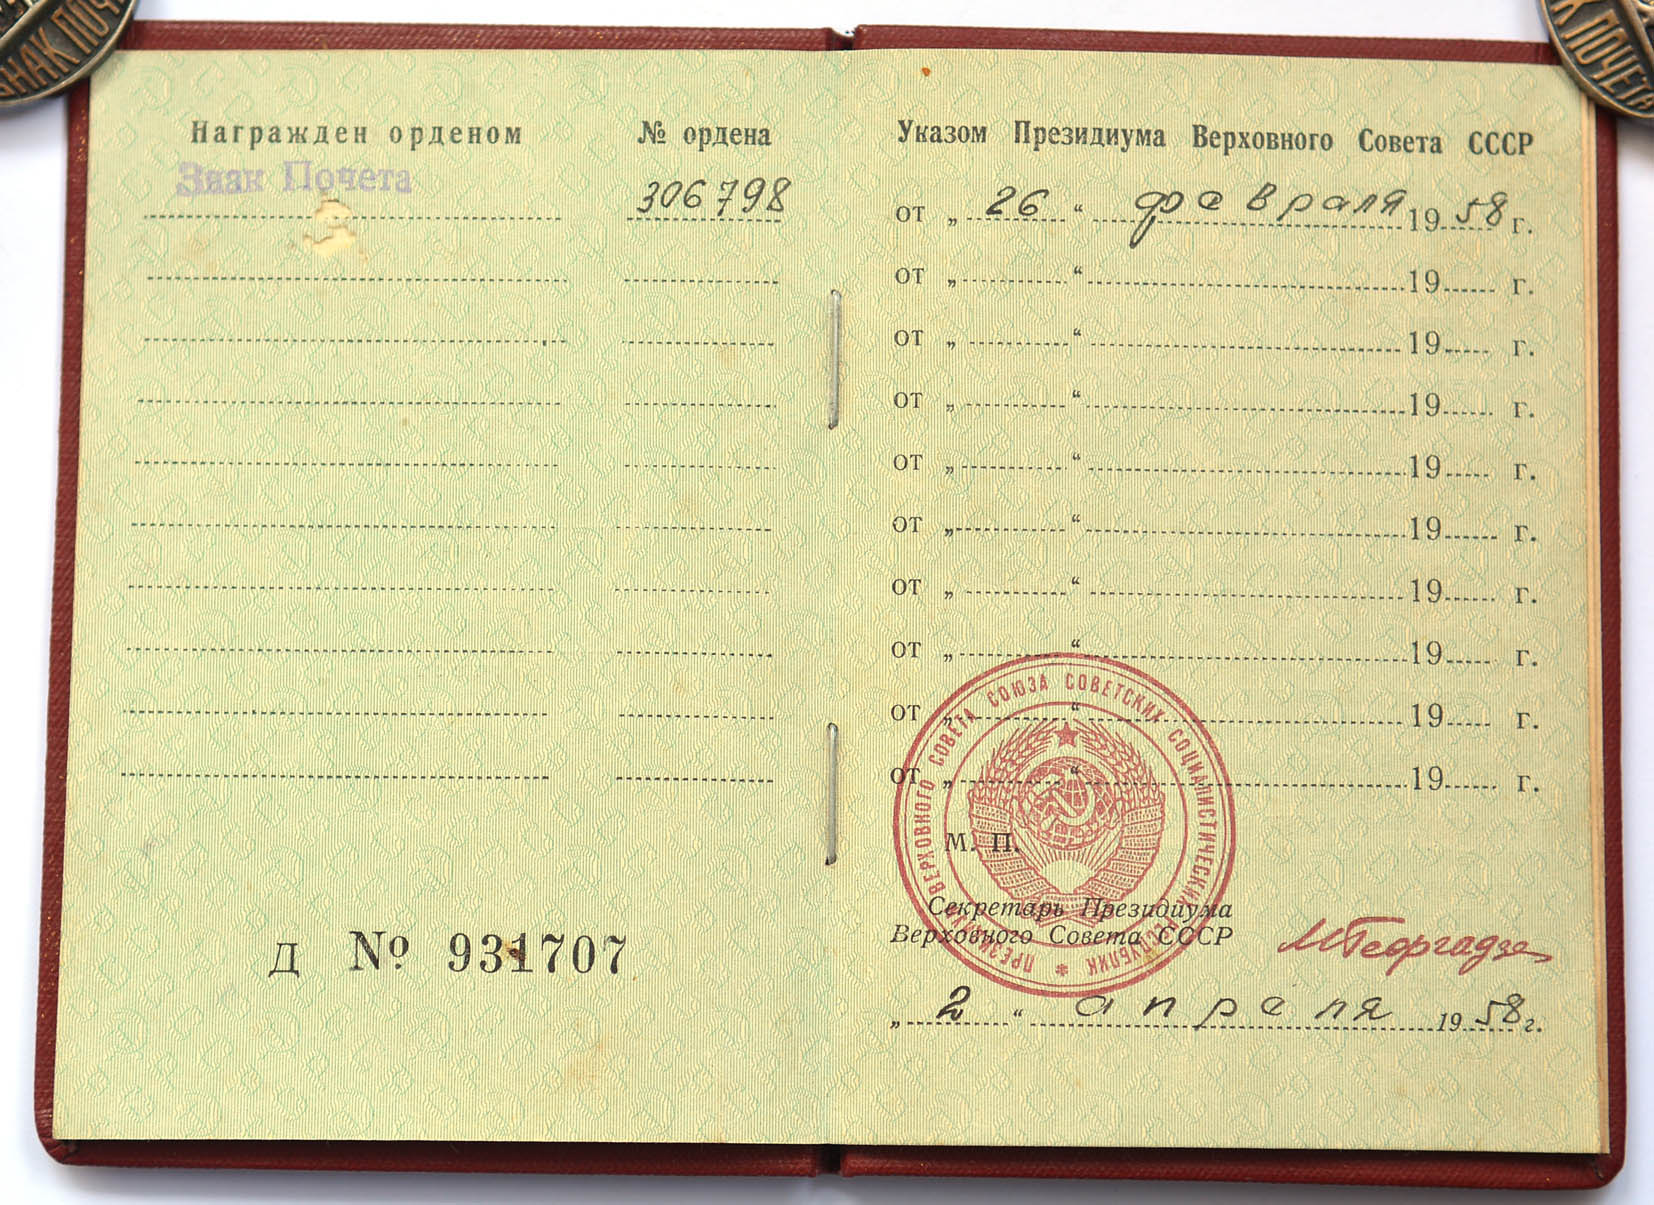 ЗНАК ПОЧ
К ПОЧЕТА
Награжден орденом
№ ордена
Знак Почета
306798
Указом Президиума Верховного Совета СССР
от „ 26 “ февраля 1958 г.
от „ “ 19 г.
от „ “ 19 г.
от „ “ 19 г.
от „ “ 19 г.
от „ “ 19 г.
от „ “ 19 г.
от „ “ 19 г.
от „ “ 19 г.
от „ “ 19 г.
ПРЕЗИДИУМ ВЕРХОВНОГО СОВЕТА СОЮЗА СОВЕТСКИХ СОЦИАЛИСТИЧЕСКИХ РЕСПУБЛИК *
М. П.
Секретарь Президиума
Верховного Совета СССР
МГеоргадзе
„ 2 “ апреля 1958 г.
Д № 931707